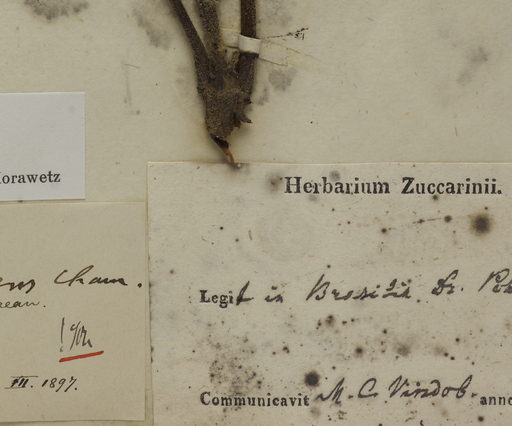 orawetz
ens Cham.
III. 1897.
Herbarium Zuccarinii.
Legit in Brasilia Dr. Poh
Communicavit M. C. Vindob. anno